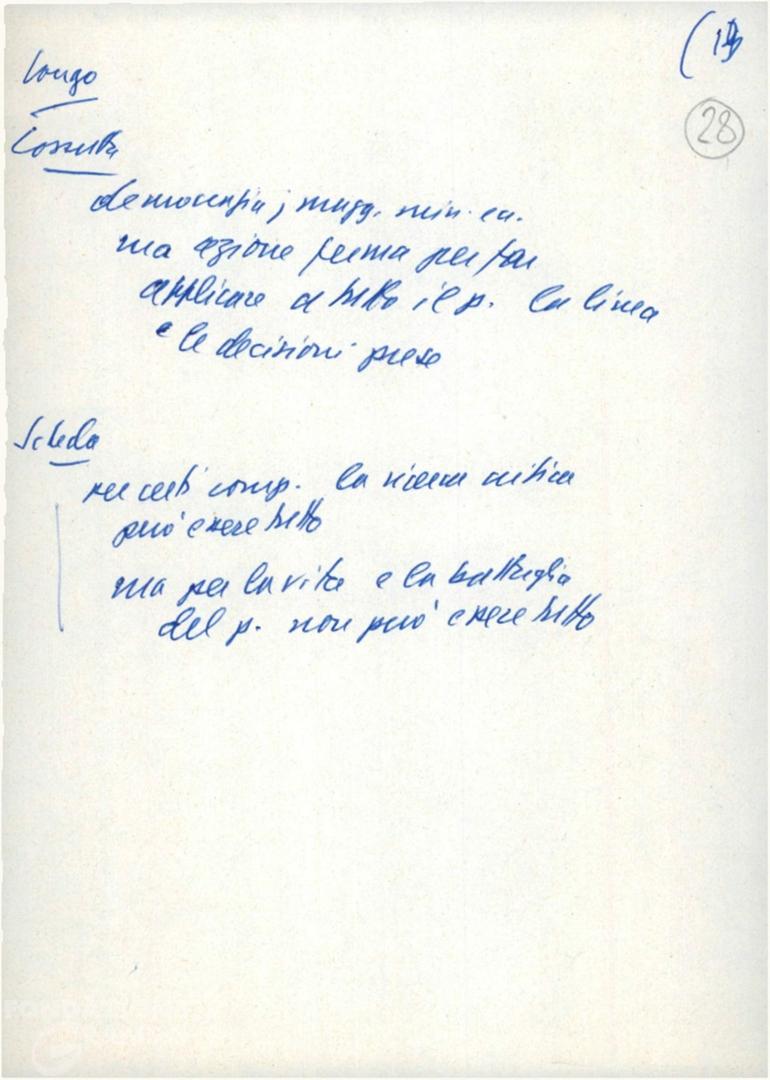 (19
28
Longo
Cossutta
democrazia; magg. min. ecc.
ma azione ferma per far
applicare a tutto il p. la linea
e le decisioni prese
Scheda
per certi comp. la ricerca critica
può essere tutto
ma per la vita e la battaglia
del p. non può essere tutto